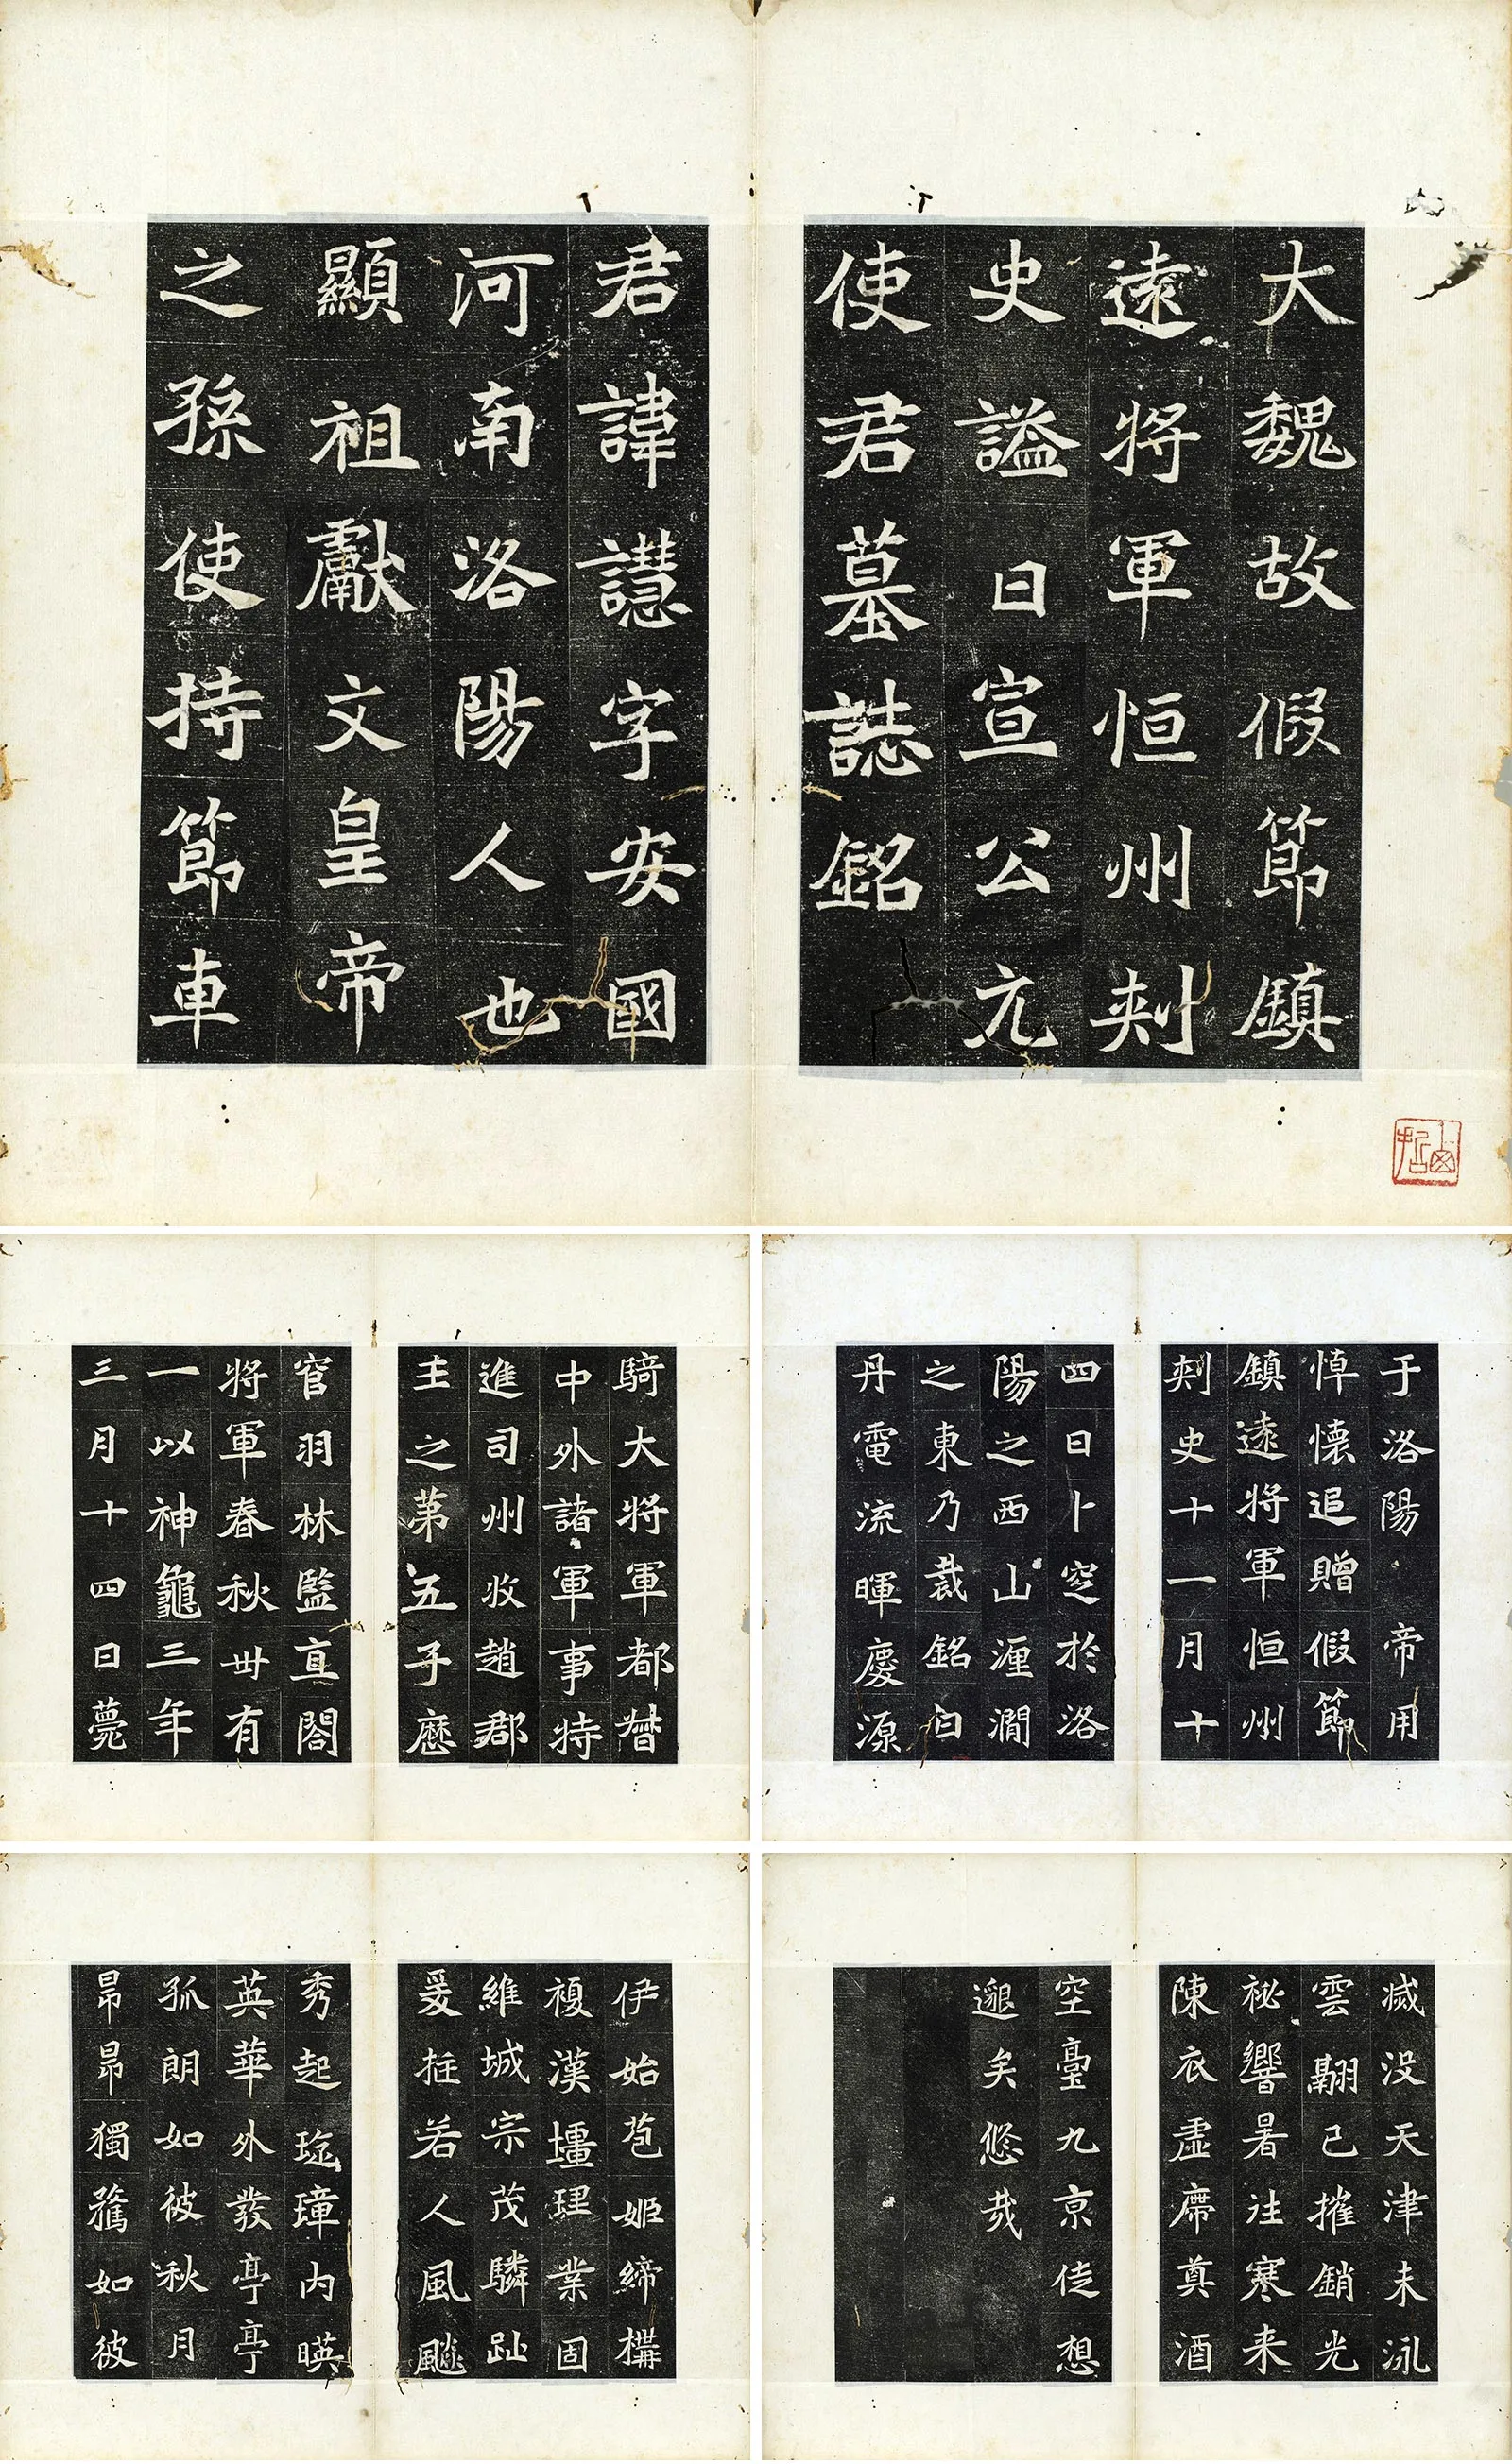 大魏故假節鎮
遠將軍恒州刾
史謚曰宣公元
使君墓誌銘
君諱譿字安國
河南洛陽人也
顯祖獻文皇帝
之孫使持節車
騎大將軍都督
中外諸軍事特
進司州牧趙郡
王之第五子歷
官羽林監直閤
將軍春秋卅有
一以神龜三年
三月十四日薨
于洛陽 帝用
悼懷追贈假節
鎮遠將軍恒州
刾史十一月十
四日卜窆於洛
陽之西山瀍澗
之東乃裁銘曰
丹電流暉慶源
伊始苞姬締構
複漢壃理業固
維城宗茂驎趾
爰挺若人風飈
秀起珤璋內暎
英華外發亭亭
孤朗如彼秋月
昂昂獨騖如彼
滅没天津未泳
雲翮已摧銷光
祕響暑往寒来
陳衣虛席奠酒
空臺九京徒想
邈矣悠哉